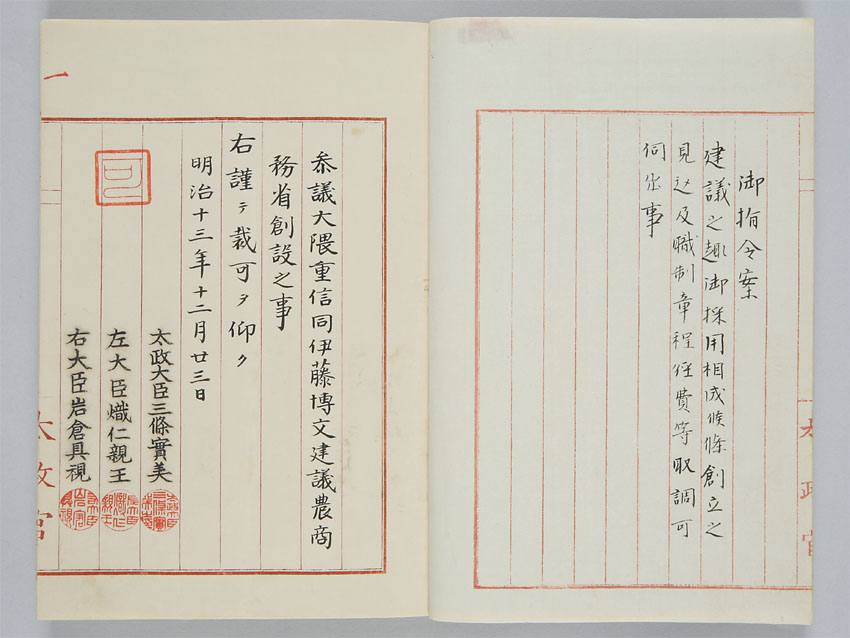 御指令案
建議之趣御採用相成候條創立之
見込及職制章程経費等取調可
伺出事
太政官
一
参議大隈重信同伊藤博文建議農商
務省創設之事
右謹テ裁可ヲ仰ク
明治十三年十二月廿三日
可
太政大臣三條實美
左大臣熾仁親王
右大臣岩倉具視
太政官